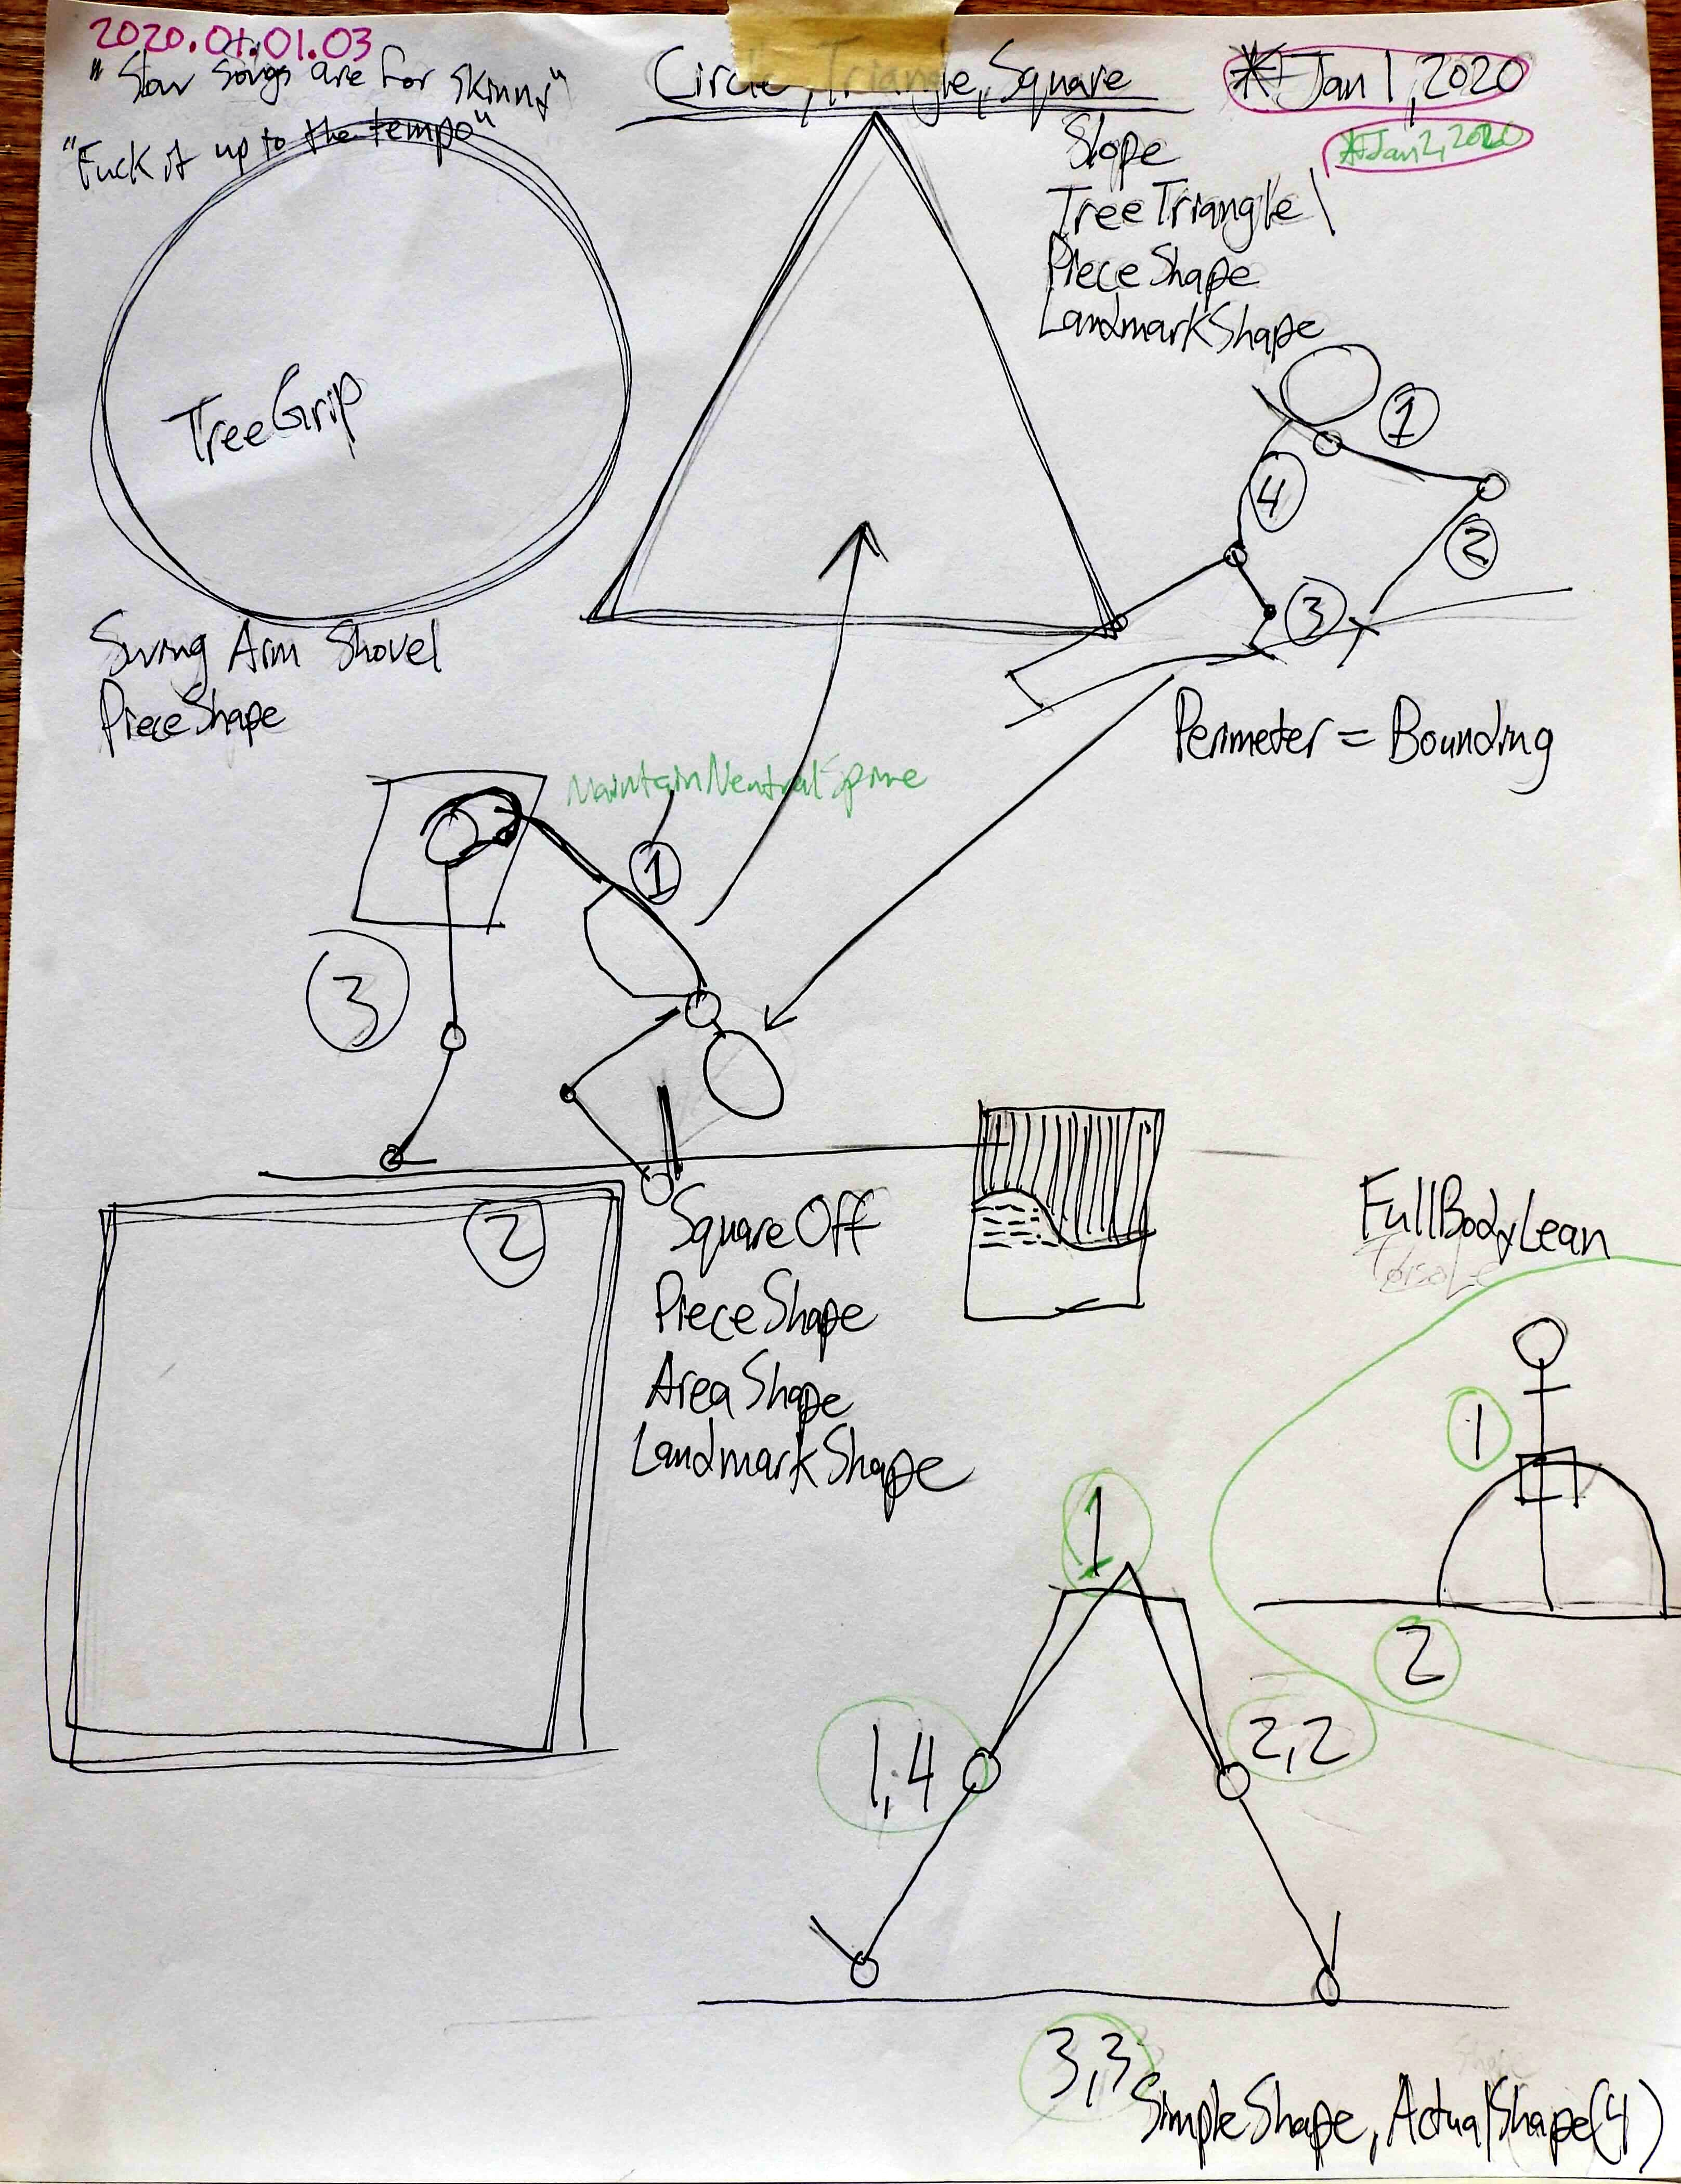 2020.01.01.03
"Slow songs are for skinny"
"Fuck it up to the tempo"
Circle, Triangle, Square
*Jan 1, 2020
*Jan 2, 2020
Slope
TreeTriangle
PieceShape
LandmarkShape
TreeGrip
1
4
2
3
Swing Arm Shovel
PieceShape
Perimeter = Bounding
MaintainNeutralSpine
1
3
2
SquareOff
PieceShape
AreaShape
LandmarkShape
FullBodyLean
1
2
1
1,4
2,2
3,3
SimpleShape, ActualShape(4)